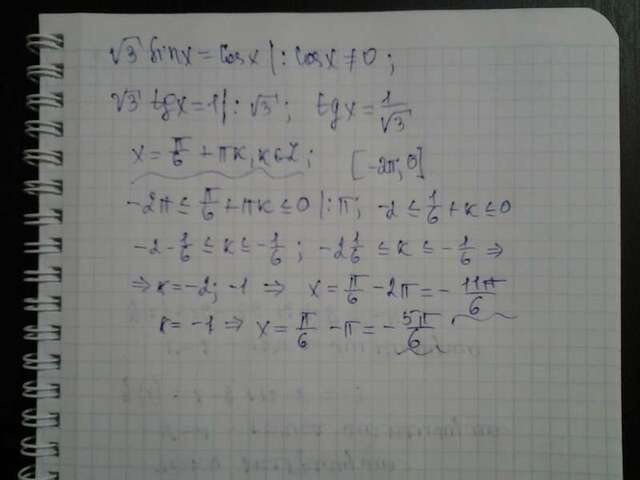 √3 sinx = cosx |: cosx ≠ 0;
√3 tgx = 1 |: √3; tgx = 1/√3
x = π/6 + πк, к∈Z; [-2π; 0]
-2π ≤ π/6 + πк ≤ 0 |: π; -2 ≤ 1/6 + к ≤ 0
-2 - 1/6 ≤ к ≤ -1/6; -2 1/6 ≤ к ≤ -1/6 ⇒
⇒ к = -2; -1 ⇒ x = π/6 - 2π = - 11π/6
к = -1 ⇒ x = π/6 - π = - 5π/6